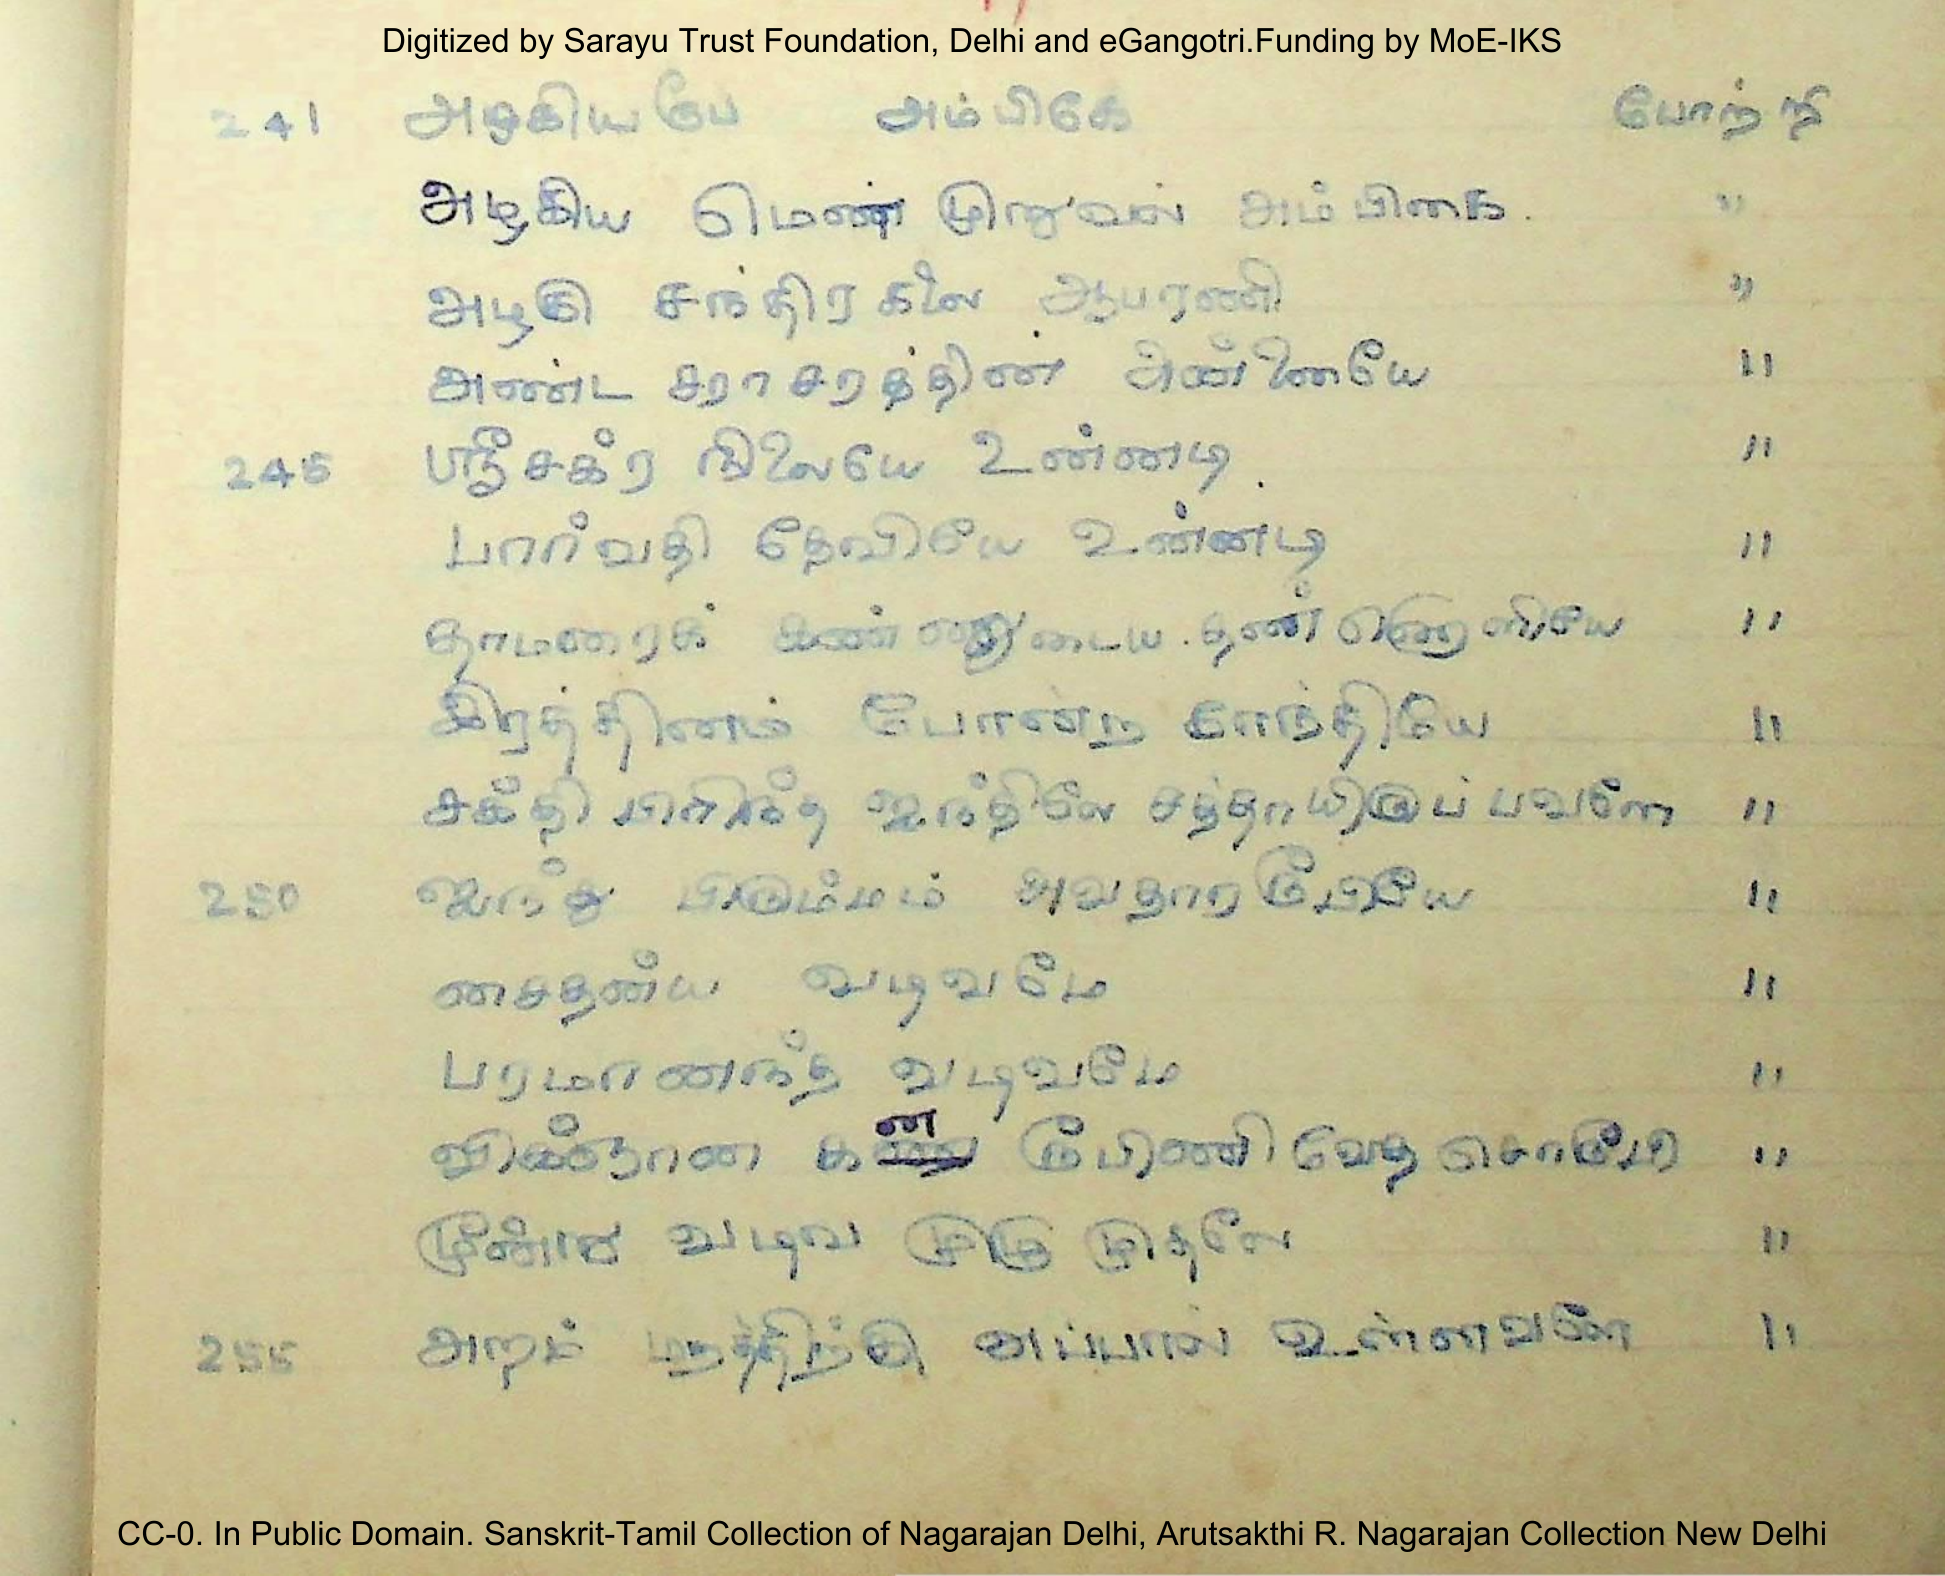 Digitized by Sarayu Trust Foundation, Delhi and eGangotri.Funding by MoE-IKS
241 அழகியபே அம்பிகே போற்றி
அழகிய மென் முறுவல் அம்பிகை. "
அழகு சந்திரகலை ஆபரணி "
அண்ட சராசரத்தின் அன்னையே "
245 ஸ்ரீசக்ர நிலையே உன்னடி "
பார்வதி தேவியே உன்னடி "
தாமரைக் கண்ணுடைய தண்ணொளியே "
இரத்தினம் போன்ற காந்தியே "
சக்தி பிரிந்த ஐந்திலே சத்தாயிருப்பவளே "
250 ஐந்து பிரும்மம் அவதார ரூபியே "
சைதன்ய வடிவமே "
பரமானந்த வடிவமே "
விக்ஞான கன ரூபிணி வேத சொரூபி "
மூன்று வடிவ முழு முதலே "
255 அறம் மறத்திற்கு அப்பால் உள்ளவளே "
CC-0. In Public Domain. Sanskrit-Tamil Collection of Nagarajan Delhi, Arutsakthi R. Nagarajan Collection New Delhi